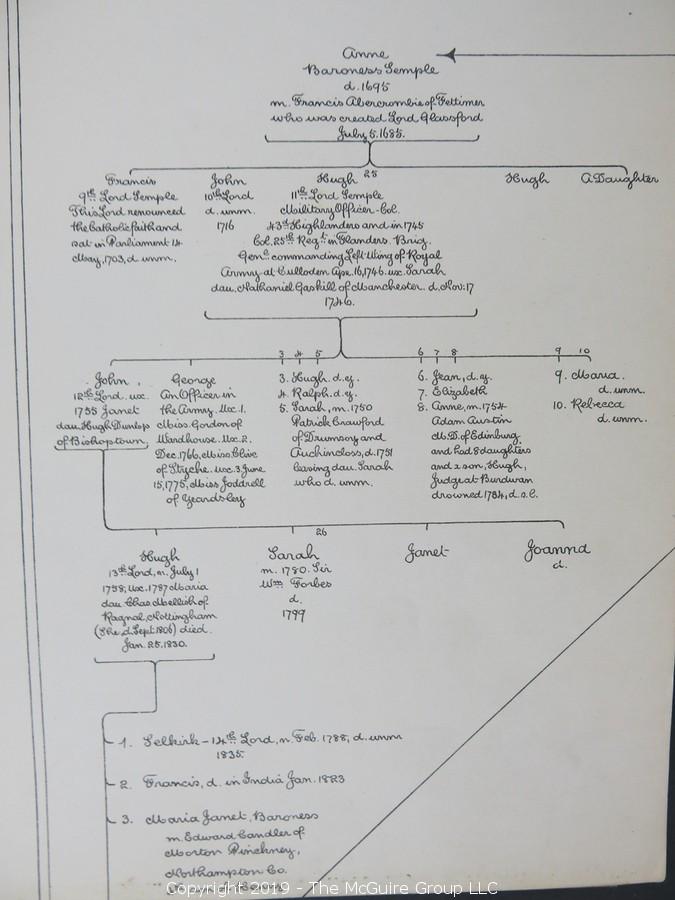 Anne
Baroness Semple
d. 1695
m. Francis Abercrombie of Fettirner
who was created Lord Glassford
July 5. 1685.
25
Francis
9th Lord Semple
This Lord renounced
the Catholic faith and
sat in Parliament 14
May, 1703, d. unm.
John
10th Lord
d. unm.
1716
Hugh
11th Lord Semple
Military Officer - Col.
43d Highlanders and in 1745
Col. 25th Regt in Flanders. Brig.
Genl commanding Left Wing of Royal
Army at Culloden Apr. 16, 1746. ux. Sarah
dau. Nathaniel Gaskill of Manchester. d. Nov. 17
1746.
Hugh
A Daughter
3 4 5 6 7 8 9 10
John,
12th Lord. ux.
1755 Janet
dau. Hugh Dunlop
of Bishoptown.
George
An Officer in
the Army. Ux. 1.
Miss Gordon of
Wardhouse. Ux. 2.
Dec. 1766, Miss Clive
of Styche. ux. 3 June
15, 1775, Miss Joddrell
of Yeardsley
3. Hugh. d. y.
4. Ralph. d. y.
5. Sarah, m. 1750
Patrick Crawford
of Drumsoy and
Auchincloss, d. 1751
leaving dau. Sarah
who d. unm.
6. Jean, d. y.
7. Elizabeth
8. Anne, m. 1754
Adam Austin
M.D. of Edinburg,
and had 8 daughters
and x son, Hugh,
Judge at Burdwan
drowned 1784, d. s. l.
9. Maria.
d. unm.
10. Rebecca
d. unm.
26
Hugh
13th Lord, n. July 1
1758; ux. 1787 Maria
dau Chas Mellish of
Ragnal, Nottingham
(She d. Sept. 1806) died.
Jan. 25, 1830.
Sarah
m. 1780. Sir
Wm Forbes
d.
1799
Janet
Joanna
d.
1. Selkirk - 14th Lord, n. Feb. 1788, d. unm
1835.
2. Francis, d. in India Jan. 1823
3. Maria Janet, Baroness
m. Edward Candler of
Morton Pinckney,
Northampton Co.
Copyright 2019 - The McGuire Group LLC